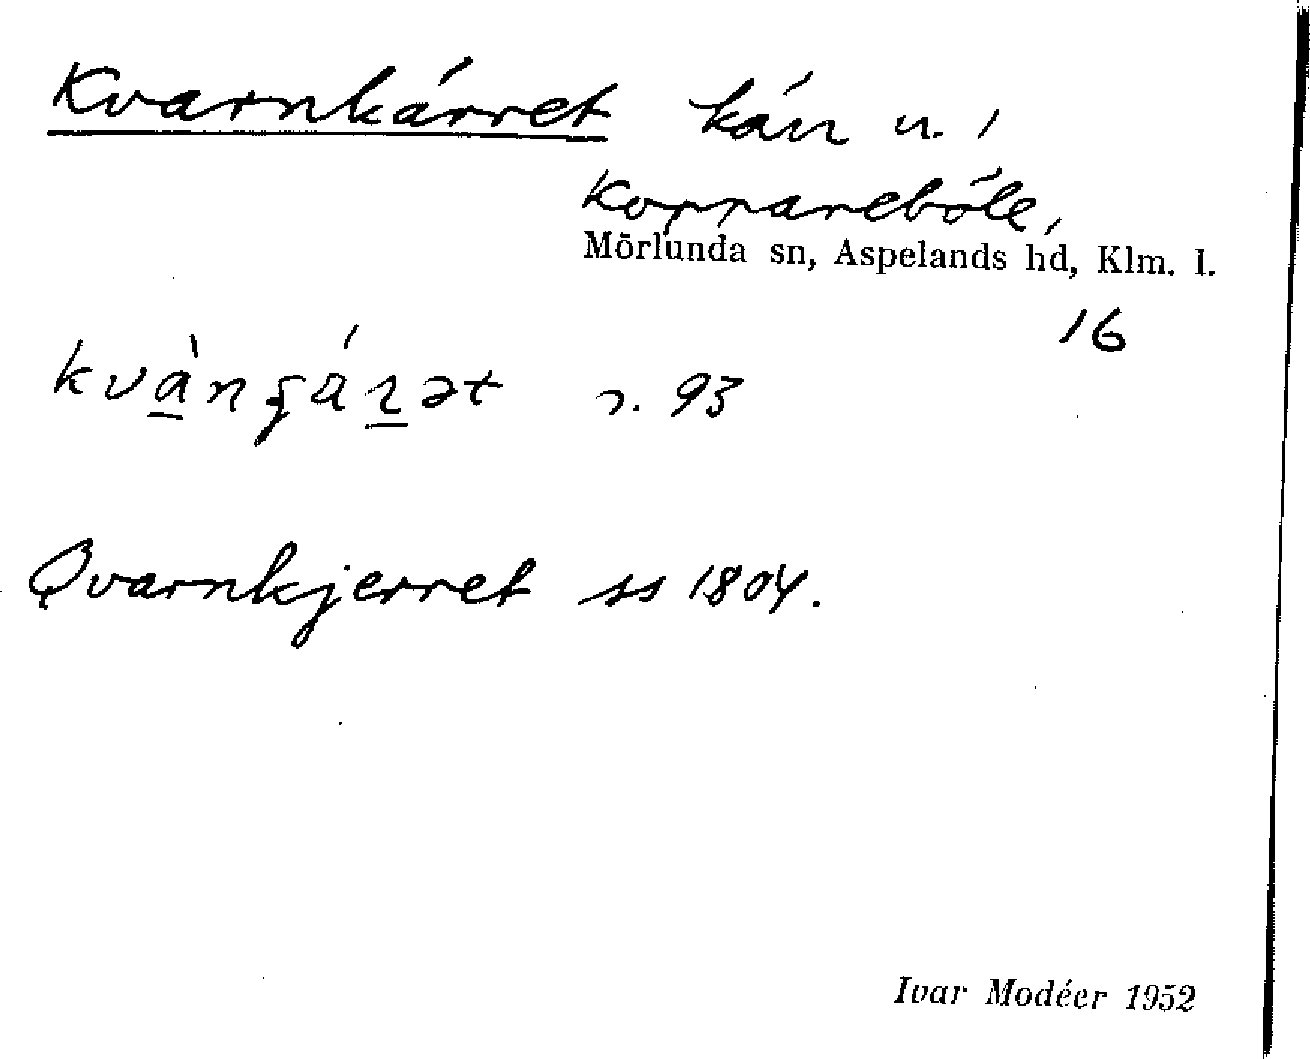 Kvarnkärret kärr n. i
Koppareböle,
Mörlunda sn, Aspelands hd, Klm. l.
16
r. 93
Qvarnkjerret ss 1804.
Ivar Modéer 1952